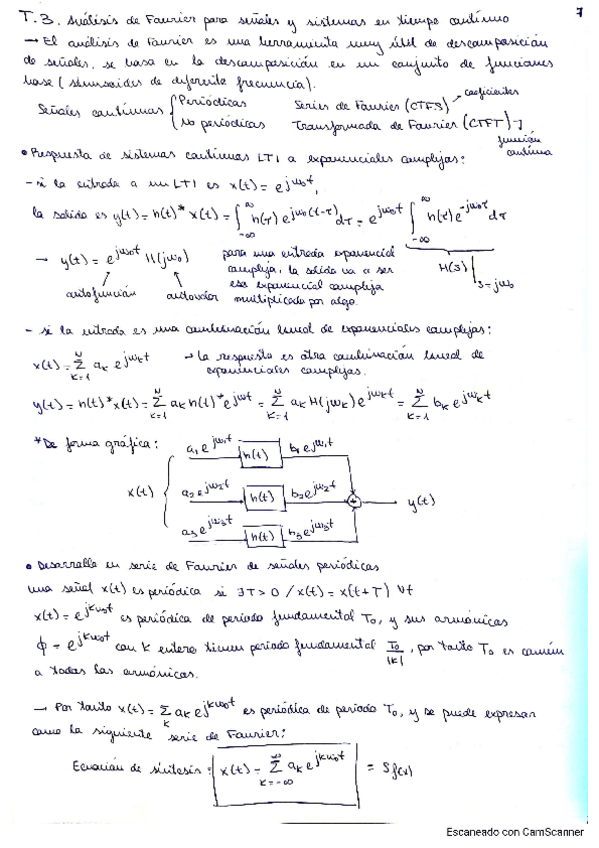 7
T.3. Análisis de Fourier para señales y sistemas en tiempo continuo
→ El análisis de Fourier es una herramienta muy útil de descomposición
de señales, se basa en la descomposición en un conjunto de funciones
base (sinusoides de diferente frecuencia).
Señales continuas { Periódicas Series de Fourier (CTFS) → coeficientes
No periódicas Transformada de Fourier (CTFT) → función continua
• Respuesta de sistemas continuos LTI a exponenciales complejas:
- si la entrada a un LTI es x(t) = e^{jω₀t},
la salida es y(t) = h(t)* x(t) = ∫_{-∞}^{∞} h(τ) e^{jω₀(t-τ)} dτ = e^{jω₀t} ∫_{-∞}^{∞} h(τ) e^{-jω₀τ} dτ
→ y(t) = e^{jω₀t} H(jω₀) para una entrada exponencial
compleja, la salida va a ser H(s)|_{s=jω₀}
esa exponencial compleja
autofunción autovalor multiplicada por algo.
- si la entrada es una combinación lineal de exponenciales complejas:
x(t) = Σ_{k=1}^{N} a_k e^{jω_k t} → la respuesta es otra combinación lineal de
exponenciales complejas.
y(t) = h(t)*x(t) = Σ_{k=1}^{N} a_k h(t)*e^{jωt} = Σ_{k=1}^{N} a_k H(jω_k) e^{jω_k t} = Σ_{k=1}^{N} b_k e^{jω_k t}
*De forma gráfica:
a₁e^{jω₁t} h(t) b₁e^{jω₁t}
x(t) { a₂e^{jω₂t} h(t) b₂e^{jω₂t} + y(t)
a₃e^{jω₃t} h(t) b₃e^{jω₃t}
• Desarrollo en serie de Fourier de señales periódicas
una señal x(t) es periódica si ∃T>0 / x(t) = x(t+T) ∀t
x(t) = e^{jkω₀t} es periódica de periodo fundamental T₀, y sus armónicas
ϕ = e^{jkω₀t} con k entero tienen periodo fundamental T₀/|k|, por tanto T₀ es común
a todas las armónicas.
→ Por tanto x(t) = Σ_k a_k e^{jkω₀t} es periódica de periodo T₀, y se puede expresar
como la siguiente serie de Fourier:
Ecuación de síntesis: x(t) = Σ_{k=-∞}^{∞} a_k e^{jkω₀t} = Sf(x)
Escaneado con CamScanner